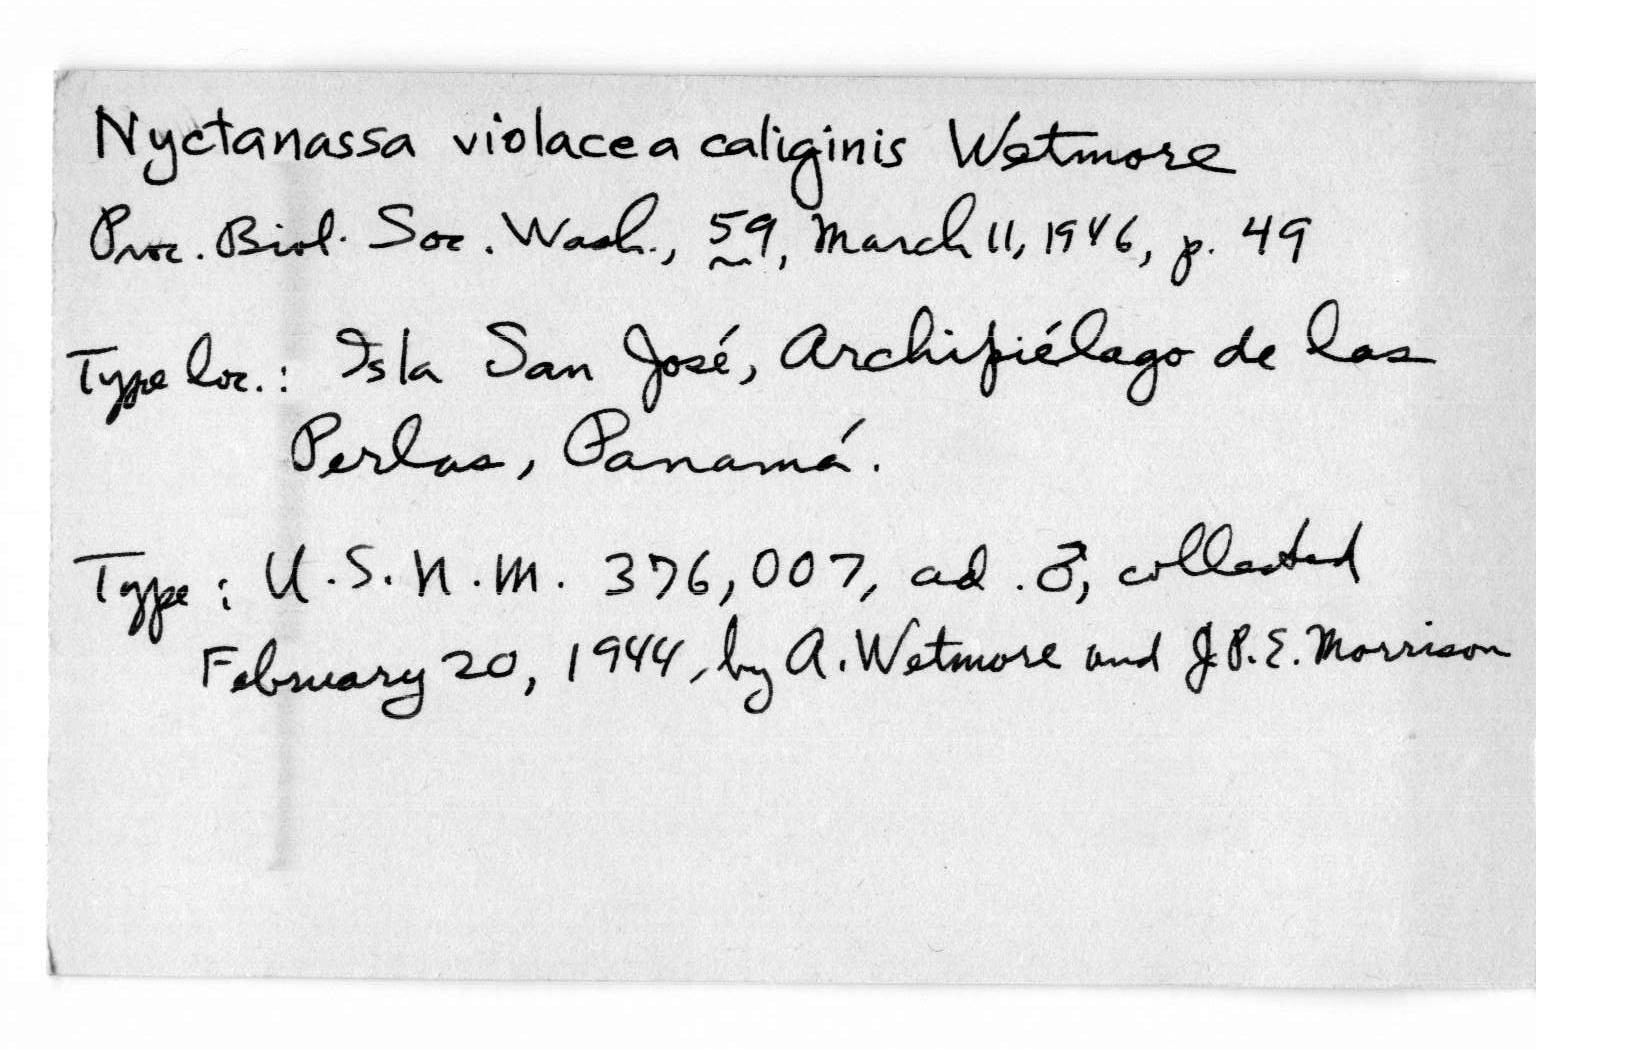 Nyctanassa violacea caliginis Wetmore
Proc. Biol. Soc. Wash., 59, March 11, 1946, p. 49
Type loc.: Isla San José, Archipiélago de las
Perlas, Panamá.
Type: U.S.N.M. 376,007, ad. ♂, collected
February 20, 1944, by A. Wetmore and J.P.E. Morrison